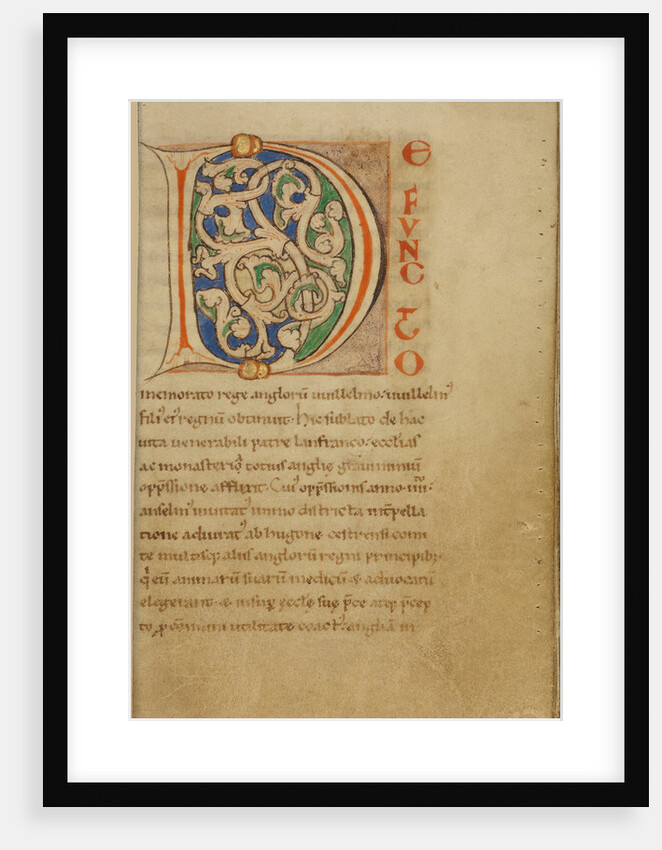 D
E
FVNC
TO
memorato rege anglorũ uuillelmo: uuillelm᾿
fili᾿ ei᾿ regnũ obtinuit. Hic sublato de hac
uita uenerabili patre lanfranco: ecclẽas
ac monasterio᷒ totius anglię grauiminiũ
opp̃ssione afflixit. Cui᾿ opp̃ssionis anno .iiii.
anselm᾿ inuitat᾿ immo districta int̃pella
tione adiurat᾿ ab hugone cestrensi comi
te multisq; aliis anglorũ regni principib;
q̃ eũ animarũ suarũ medicũ & aduocatũ
elegerant. & insup̱ ęcclę suę p̃ce atq; p̃cep
to p̱ cõmuni utilitate coact᾿: angliã in